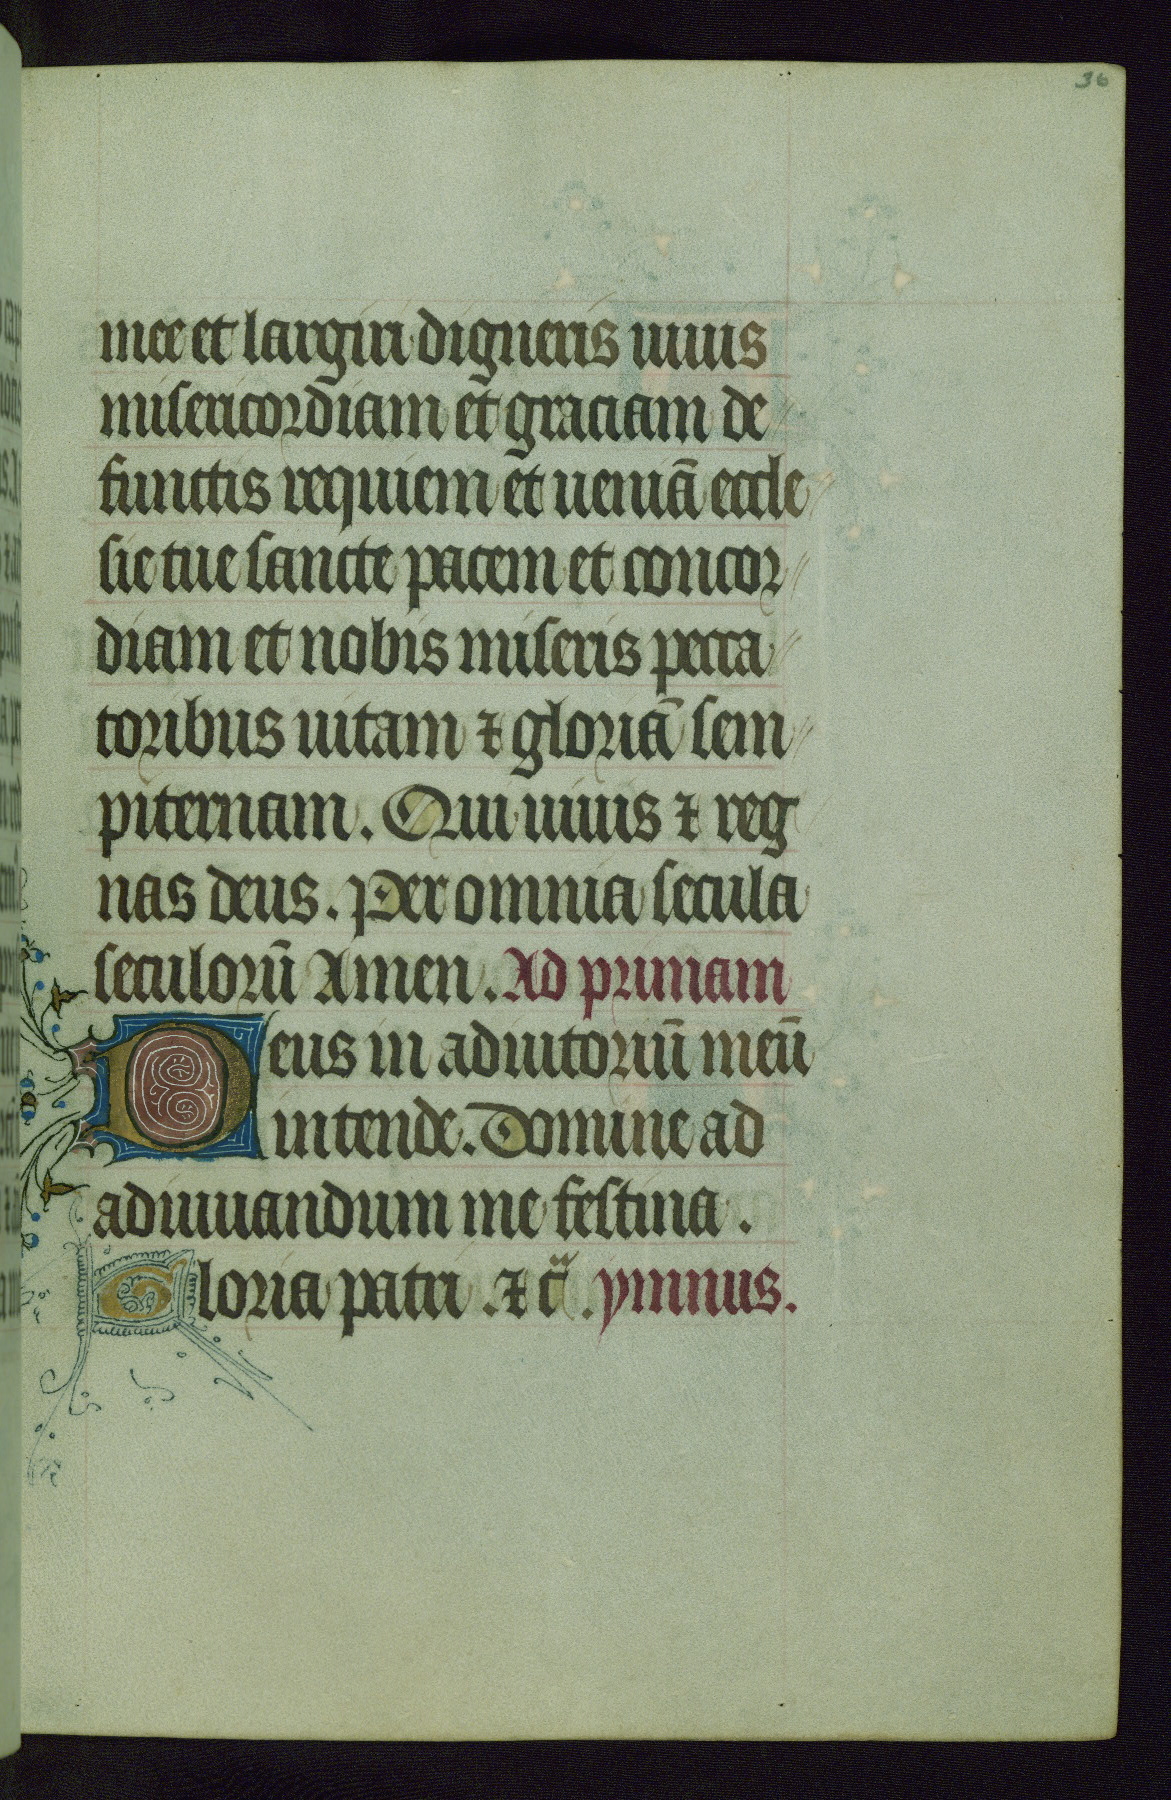 36
mee et largiri digneris uiuis
misericordiam et graciam de
functis requiem et ueniā eccle
sie tue sancte pacem et concor
diam et nobis miseris pecca
toribus uitam ⁊ gloriā sem
piternam. Qui uiuis ⁊ reg
nas deus. Per omnia secula
seculorū Amen. Ad primam
Deus in adiutoriū meū
intende. Domine ad
adiuuandum me festina.
Gloria patri .⁊ c̄. ymnus.